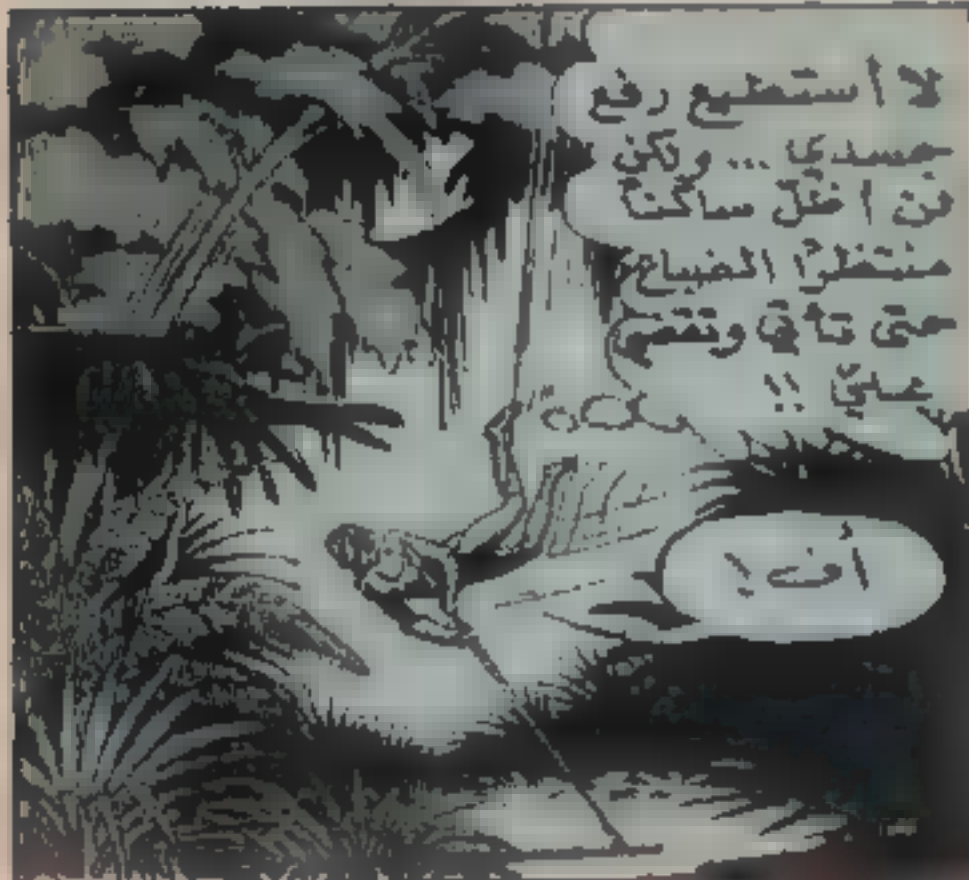 لا أستطيع رفع
جسدي ... ولكن
لن اظل ساكناً
منتظراً الضباع
حتى تأتي وتنقض
عليّ !!
أف !